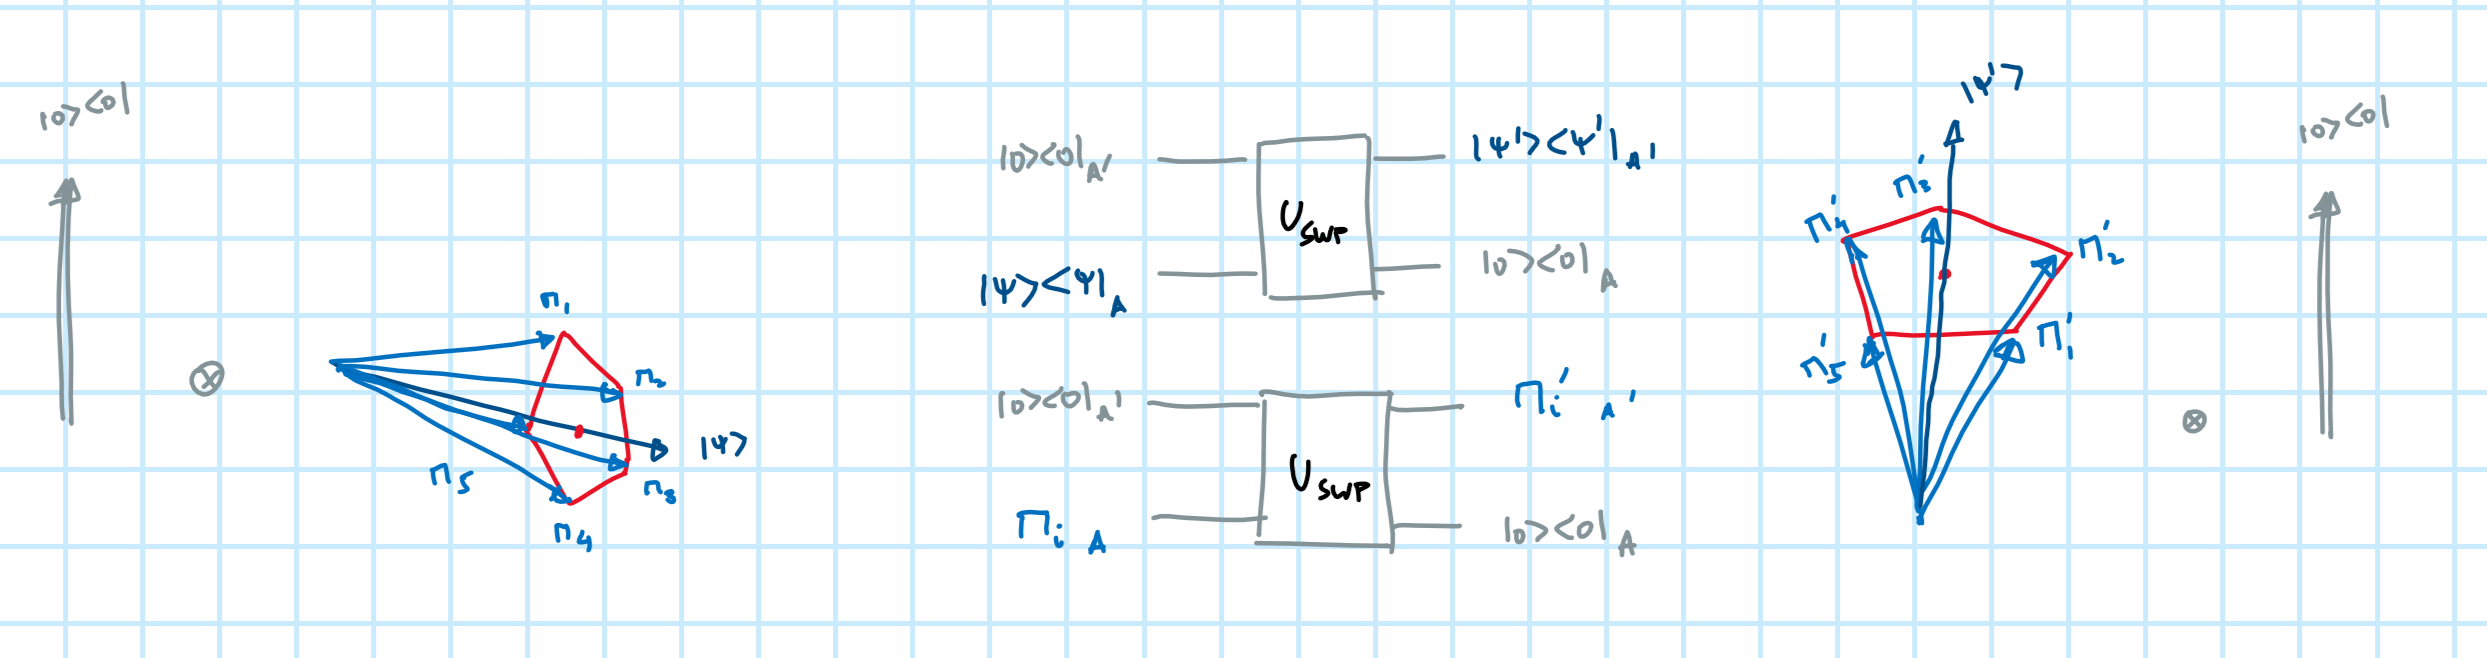 |0><0|
Π₁
Π₂
|ψ>
Π₃
Π₄
Π₅
|0><0|_A'
U_SWP
|ψ'><ψ'|_A'
|ψ><ψ|_A
|0><0|_A
|0><0|_A'
U_SWP
Π_i' _A'
Π_i _A
|0><0|_A
|ψ'>
Π₃'
Π₄'
Π₂'
Π₁'
Π₅'
|0><0|